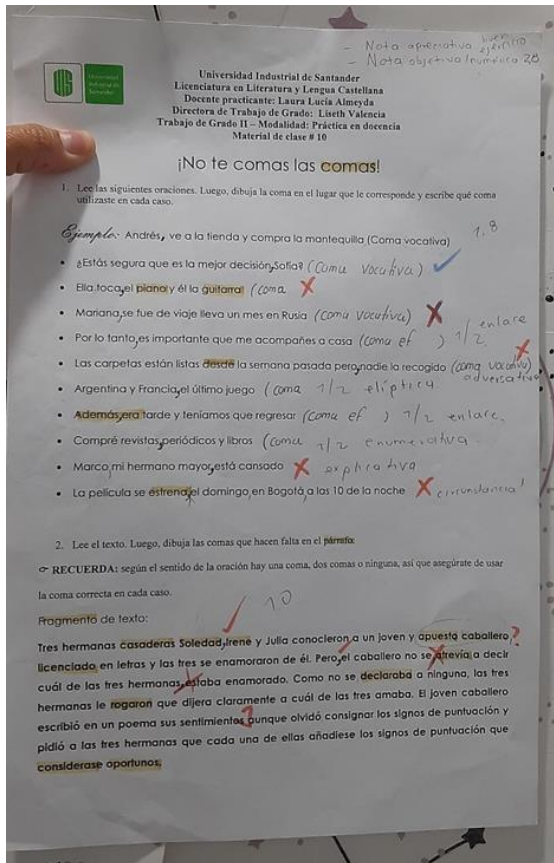 - Nota apreciativa buen ejercicio
- Nota objetiva/numérica 2.8
UIS
Universidad Industrial de Santander
Universidad Industrial de Santander
Licenciatura en Literatura y Lengua Castellana
Docente practicante: Laura Lucía Almeyda
Directora de Trabajo de Grado: Liseth Valencia
Trabajo de Grado II – Modalidad: Práctica en docencia
Material de clase # 10
¡No te comas las comas!
1. Lee las siguientes oraciones. Luego, dibuja la coma en el lugar que le corresponde y escribe qué coma
utilizaste en cada caso.
Ejemplo: Andrés, ve a la tienda y compra la mantequilla (Coma vocativa) 1.8
• ¿Estás segura que es la mejor decisión, Sofía? (Coma vocativa)
• Ella toca, el piano y él la guitarra (coma
• Mariana, se fue de viaje lleva un mes en Rusia (Coma vocativa)
• Por lo tanto, es importante que me acompañes a casa (coma ef ) 1/2 enlace
• Las carpetas están listas desde la semana pasada pero, nadie la recogido (coma vocativa) adversativa
• Argentina y Francia, el último juego (coma 1/2 elíptica
• Además, era tarde y teníamos que regresar (coma ef ) 1/2 enlace
• Compré revistas, periódicos y libros (coma 1/2 enumerativa
• Marco, mi hermano mayor, está cansado explicativa
• La película se estrena, el domingo, en Bogotá, a las 10 de la noche circunstancial
2. Lee el texto. Luego, dibuja las comas que hacen falta en el párrafo:
RECUERDA: según el sentido de la oración hay una coma, dos comas o ninguna, así que asegúrate de usar
la coma correcta en cada caso.
1.0
Fragmento de texto:
Tres hermanas casaderas Soledad, Irene y Julia conocieron a un joven y apuesto caballero, ?
licenciado en letras y las tres se enamoraron de él. Pero, el caballero no se atrevía, a decir
cuál de las tres hermanas, estaba enamorado. Como no se declaraba a ninguna, las tres
hermanas le rogaron que dijera claramente a cuál de las tres amaba. El joven caballero
escribió en un poema sus sentimientos, aunque olvidó consignar los signos de puntuación y
pidió a las tres hermanas que cada una de ellas añadiese los signos de puntuación que
considerase oportunos.